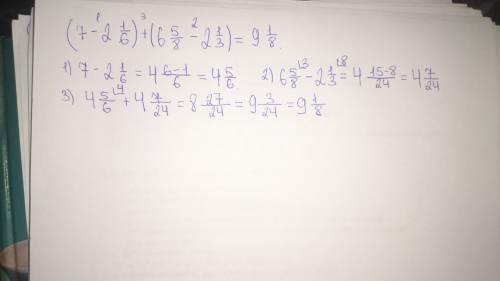 (7 - 2 1/6) + (6 5/8 - 2 1/3) = 9 1/8.
1) 7 - 2 1/6 = 4 (6-1)/6 = 4 5/6 2) 6 5/8 - 2 1/3 = 4 (15-8)/24 = 4 7/24
3) 4 5/6 + 4 7/24 = 8 27/24 = 9 3/24 = 9 1/8